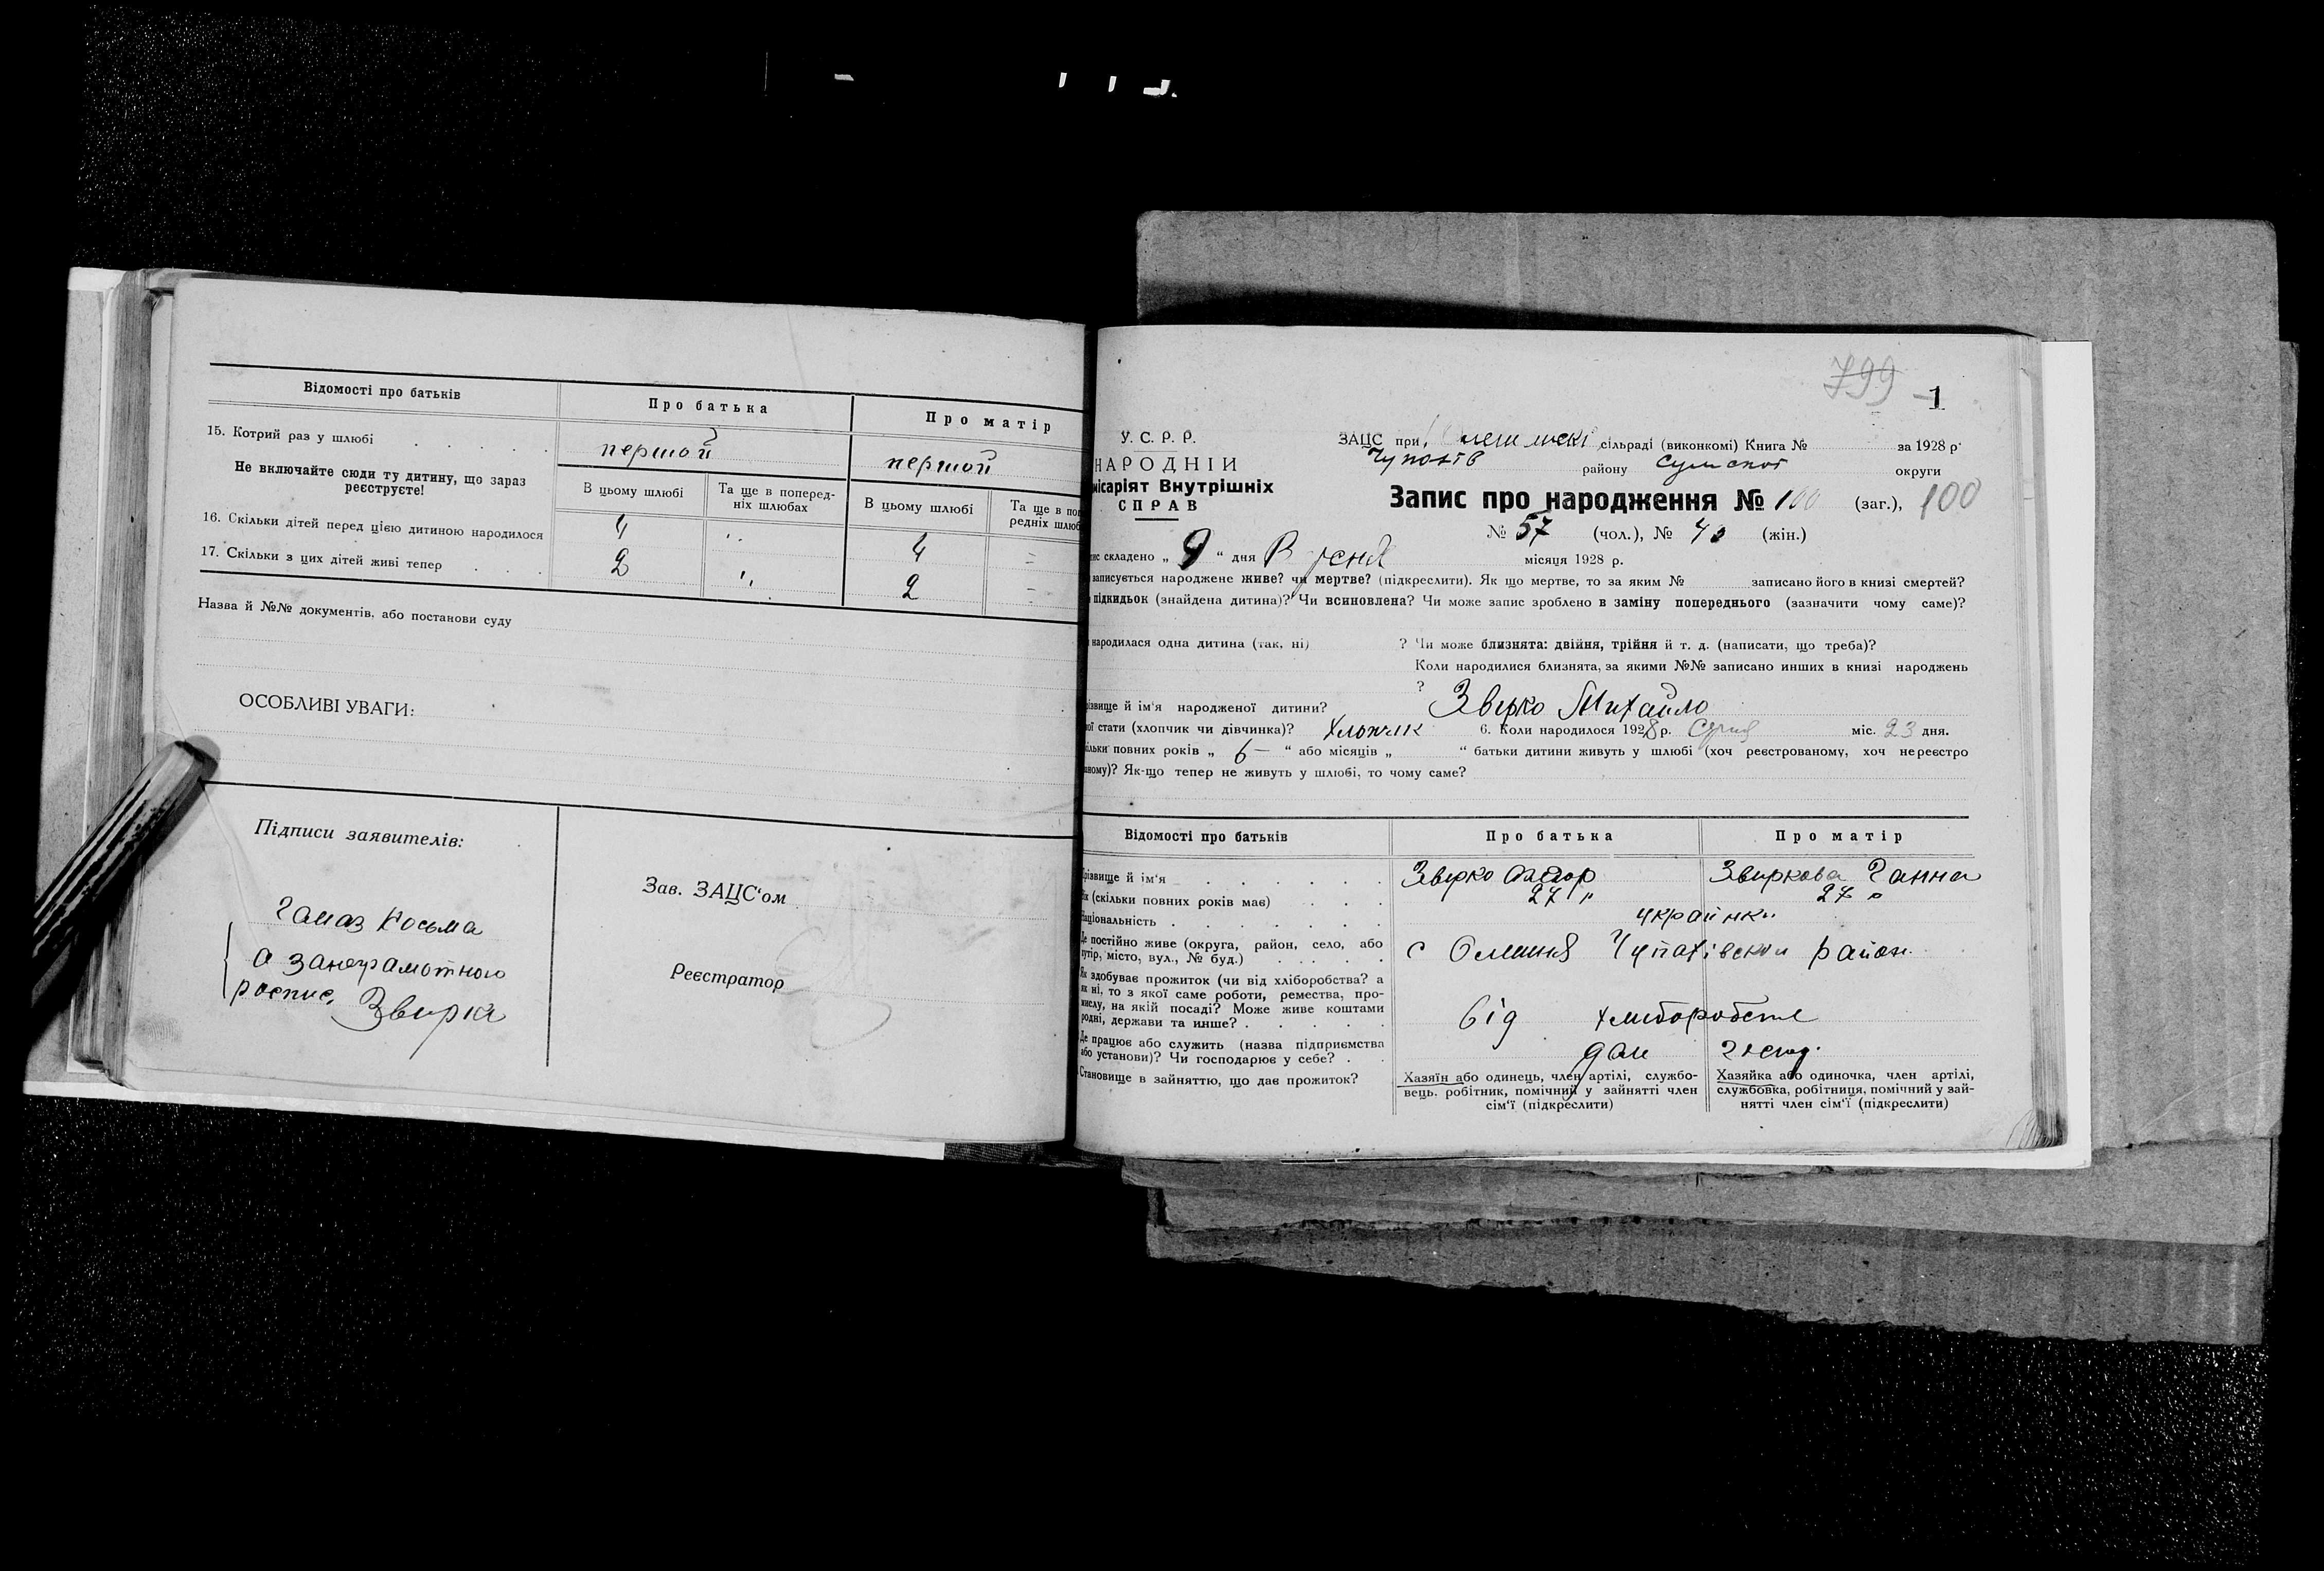 Відомості про батьків
Про батька
Про матір
15. Котрий раз у шлюбі
першой
першой
Не включайте сюди ту дитину, що зараз
реєструєте!
В цьому шлюбі
Та ще в поперед-
ніх шлюбах
В цьому шлюбі
Та ще в
редніх
16. Скільки дітей перед цією дитиною народилося
4
4
17. Скільки з цих дітей живі тепер
2
2
Назва й №№ документів, або постанови суду
ОСОБЛИВІ УВАГИ:
Підписи заявителів:
Зав. ЗАЦС'ом
Реєстратор
Косьма
а занеграмотного
роспис. Звирка
799
1
У. С. Р. Р.
НАРОДНІЙ
місаріят Внутрішніх
СПРАВ
ЗАЦС при сільраді (виконкомі) Книга № за 1928 р.
району округи
Запис про народження № 100 (заг.), 100
№ 57 (чол.), № (жін.)
складено „ 9 “ дня місяця 1928 р.
записується народжене живе? чи мертве? (підкреслити). Як що мертве, то за яким № записано його в книзі смертей?
підкидьок (знайдена дитина)? Чи всиновлена? Чи може запис зроблено в заміну попереднього (зазначити чому саме)?
народилася одна дитина (так, ні) ? Чи може близнята: двійня, трійня й т. д. (написати, що треба)?
Коли народилися близнята, за якими №№ записано инших в книзі народжень
?
й ім'я народженої дитини? Звирко Михайло
стати (хлопчик чи дівчинка)? Хлопчик 6. Коли народилося 1928 р. міс. 23 дня.
повних років „ 6 “ або місяців „ “ батьки дитини живуть у шлюбі (хоч реєстрованому, хоч нереєстро
ному)? Як-що тепер не живуть у шлюбі, то чому саме?
Відомості про батьків
Про батька
Про матір
й ім'я
Звирко
Звиркова Ганна
(скільки повних років має)
27 "
27 "
Національність
українки
Де постійно живе (округа, район, село, або
хутір, місто, вул., № буд.)
с район.
Як здобуває прожиток (чи від хліборобства? а
як ні, то з якої саме роботи, ремества, про-
мислу, на якій посаді? Може живе коштами
родні, держави та инше?
від
Де працює або служить (назва підприємства
або установи)? Чи господарює у себе?
Становище в зайняттю, що дає прожиток?
Хазяїн або одинець, член артілі, службо-
вець, робітник, помічний у зайнятті член
сім'ї (підкреслити)
Хазяйка або одиночка, член артілі,
службовка, робітниця, помічний у зай-
нятті член сім'ї (підкреслити)